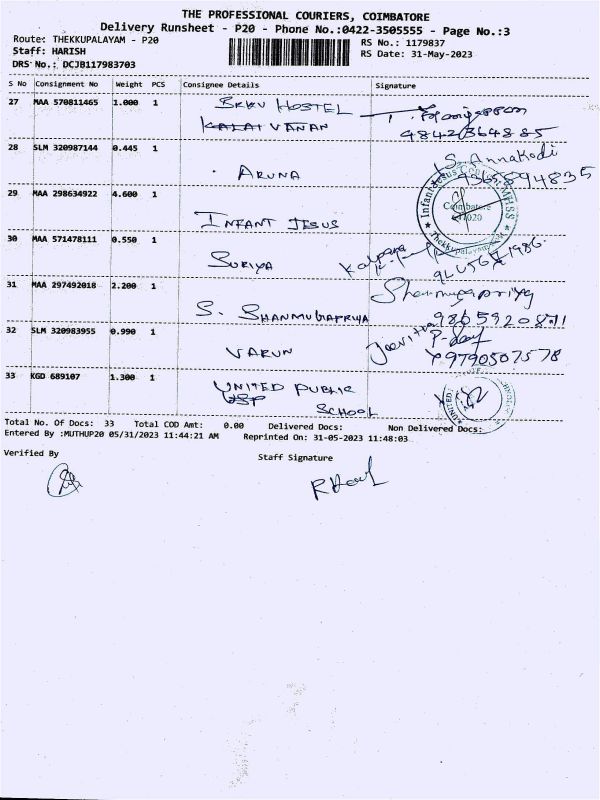 THE PROFESSIONAL COURIERS, COIMBATORE
Delivery Runsheet - P20 - Phone No.:0422-3505555 - Page No.:3
Route: THEKKUPALAYAM - P20
RS No.: 1179837
Staff: HARISH
RS Date: 31-May-2023
DRS No.: DCJB117983703
S No Consignment No Weight PCS Consignee Details Signature
27 MAA 570811465 1.000 1 BKKV HOSTEL
KALAI VANAN
28 SLM 320987144 0.445 1 ARUNA S. Annakodi
29 MAA 298634922 4.600 1 INFANT JESUS
Coimbatore
30 MAA 571478111 0.550 1 SURIYA Kalpana
31 MAA 297492018 2.200 1 S. SHANMUGAPRIYA Shanmugapriya
32 SLM 320983955 0.990 1 VARUN
9790507578
33 KGD 689107 1.300 1 UNITED PUBLIC
SCHOOL
Total No. Of Docs: 33 Total COD Amt: 0.00 Delivered Docs: Non Delivered Docs:
Entered By :MUTHUP20 05/31/2023 11:44:21 AM Reprinted On: 31-05-2023 11:48:03
Verified By
Staff Signature